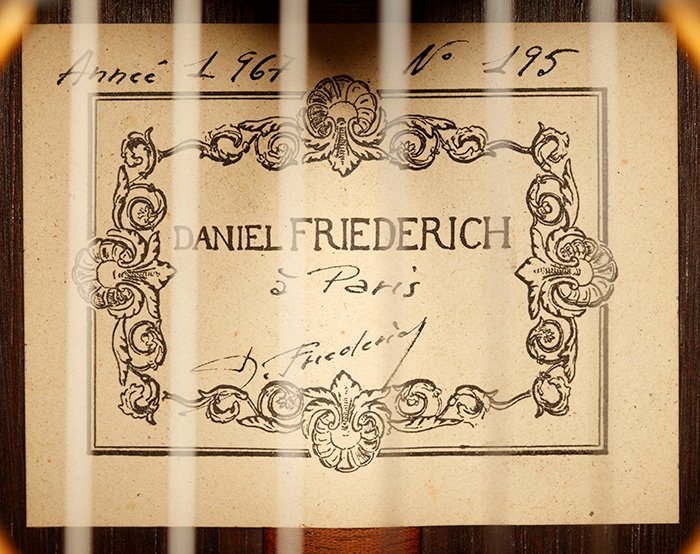 Année 1967 No 195
DANIEL FRIEDERICH
à Paris
D. Friederich